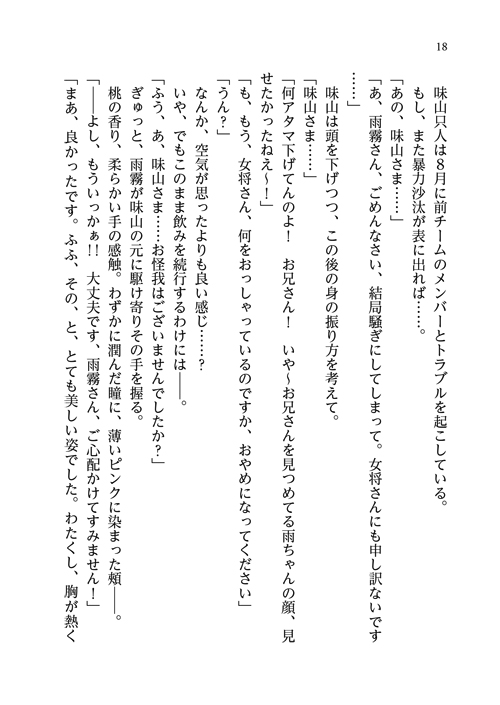 18
味山只人は８月に前チームのメンバーとトラブルを起こしている。
もし、また暴力沙汰が表に出れば……。
「あの、味山さま……」
「あ、雨霧さん、ごめんなさい、結局騒ぎにしてしまって。女将さんにも申し訳ないです
……」
味山は頭を下げつつ、この後の身の振り方を考えて。
「味山さま……」
「何アタマ下げてんのよ！　お兄さん！　いや～お兄さんを見つめてる雨ちゃんの顔、見
せたかったねえ～！」
「も、もう、女将さん、何をおっしゃっているのですか、おやめになってください」
「うん？」
なんか、空気が思ったよりも良い感じ……？
いや、でもこのまま飲みを続行するわけには――。
「ふう、あ、味山さま……お怪我はございませんでしたか？」
ぎゅっと、雨霧が味山の元に駆け寄りその手を握る。
桃の香り、柔らかい手の感触。わずかに潤んだ瞳に、薄いピンクに染まった頰――。
「――よし、もういっかぁ!!　大丈夫です、雨霧さん、ご心配かけてすみません！」
「まあ、良かったです。ふふ、その、と、とても美しい姿でした。わたくし、胸が熱く